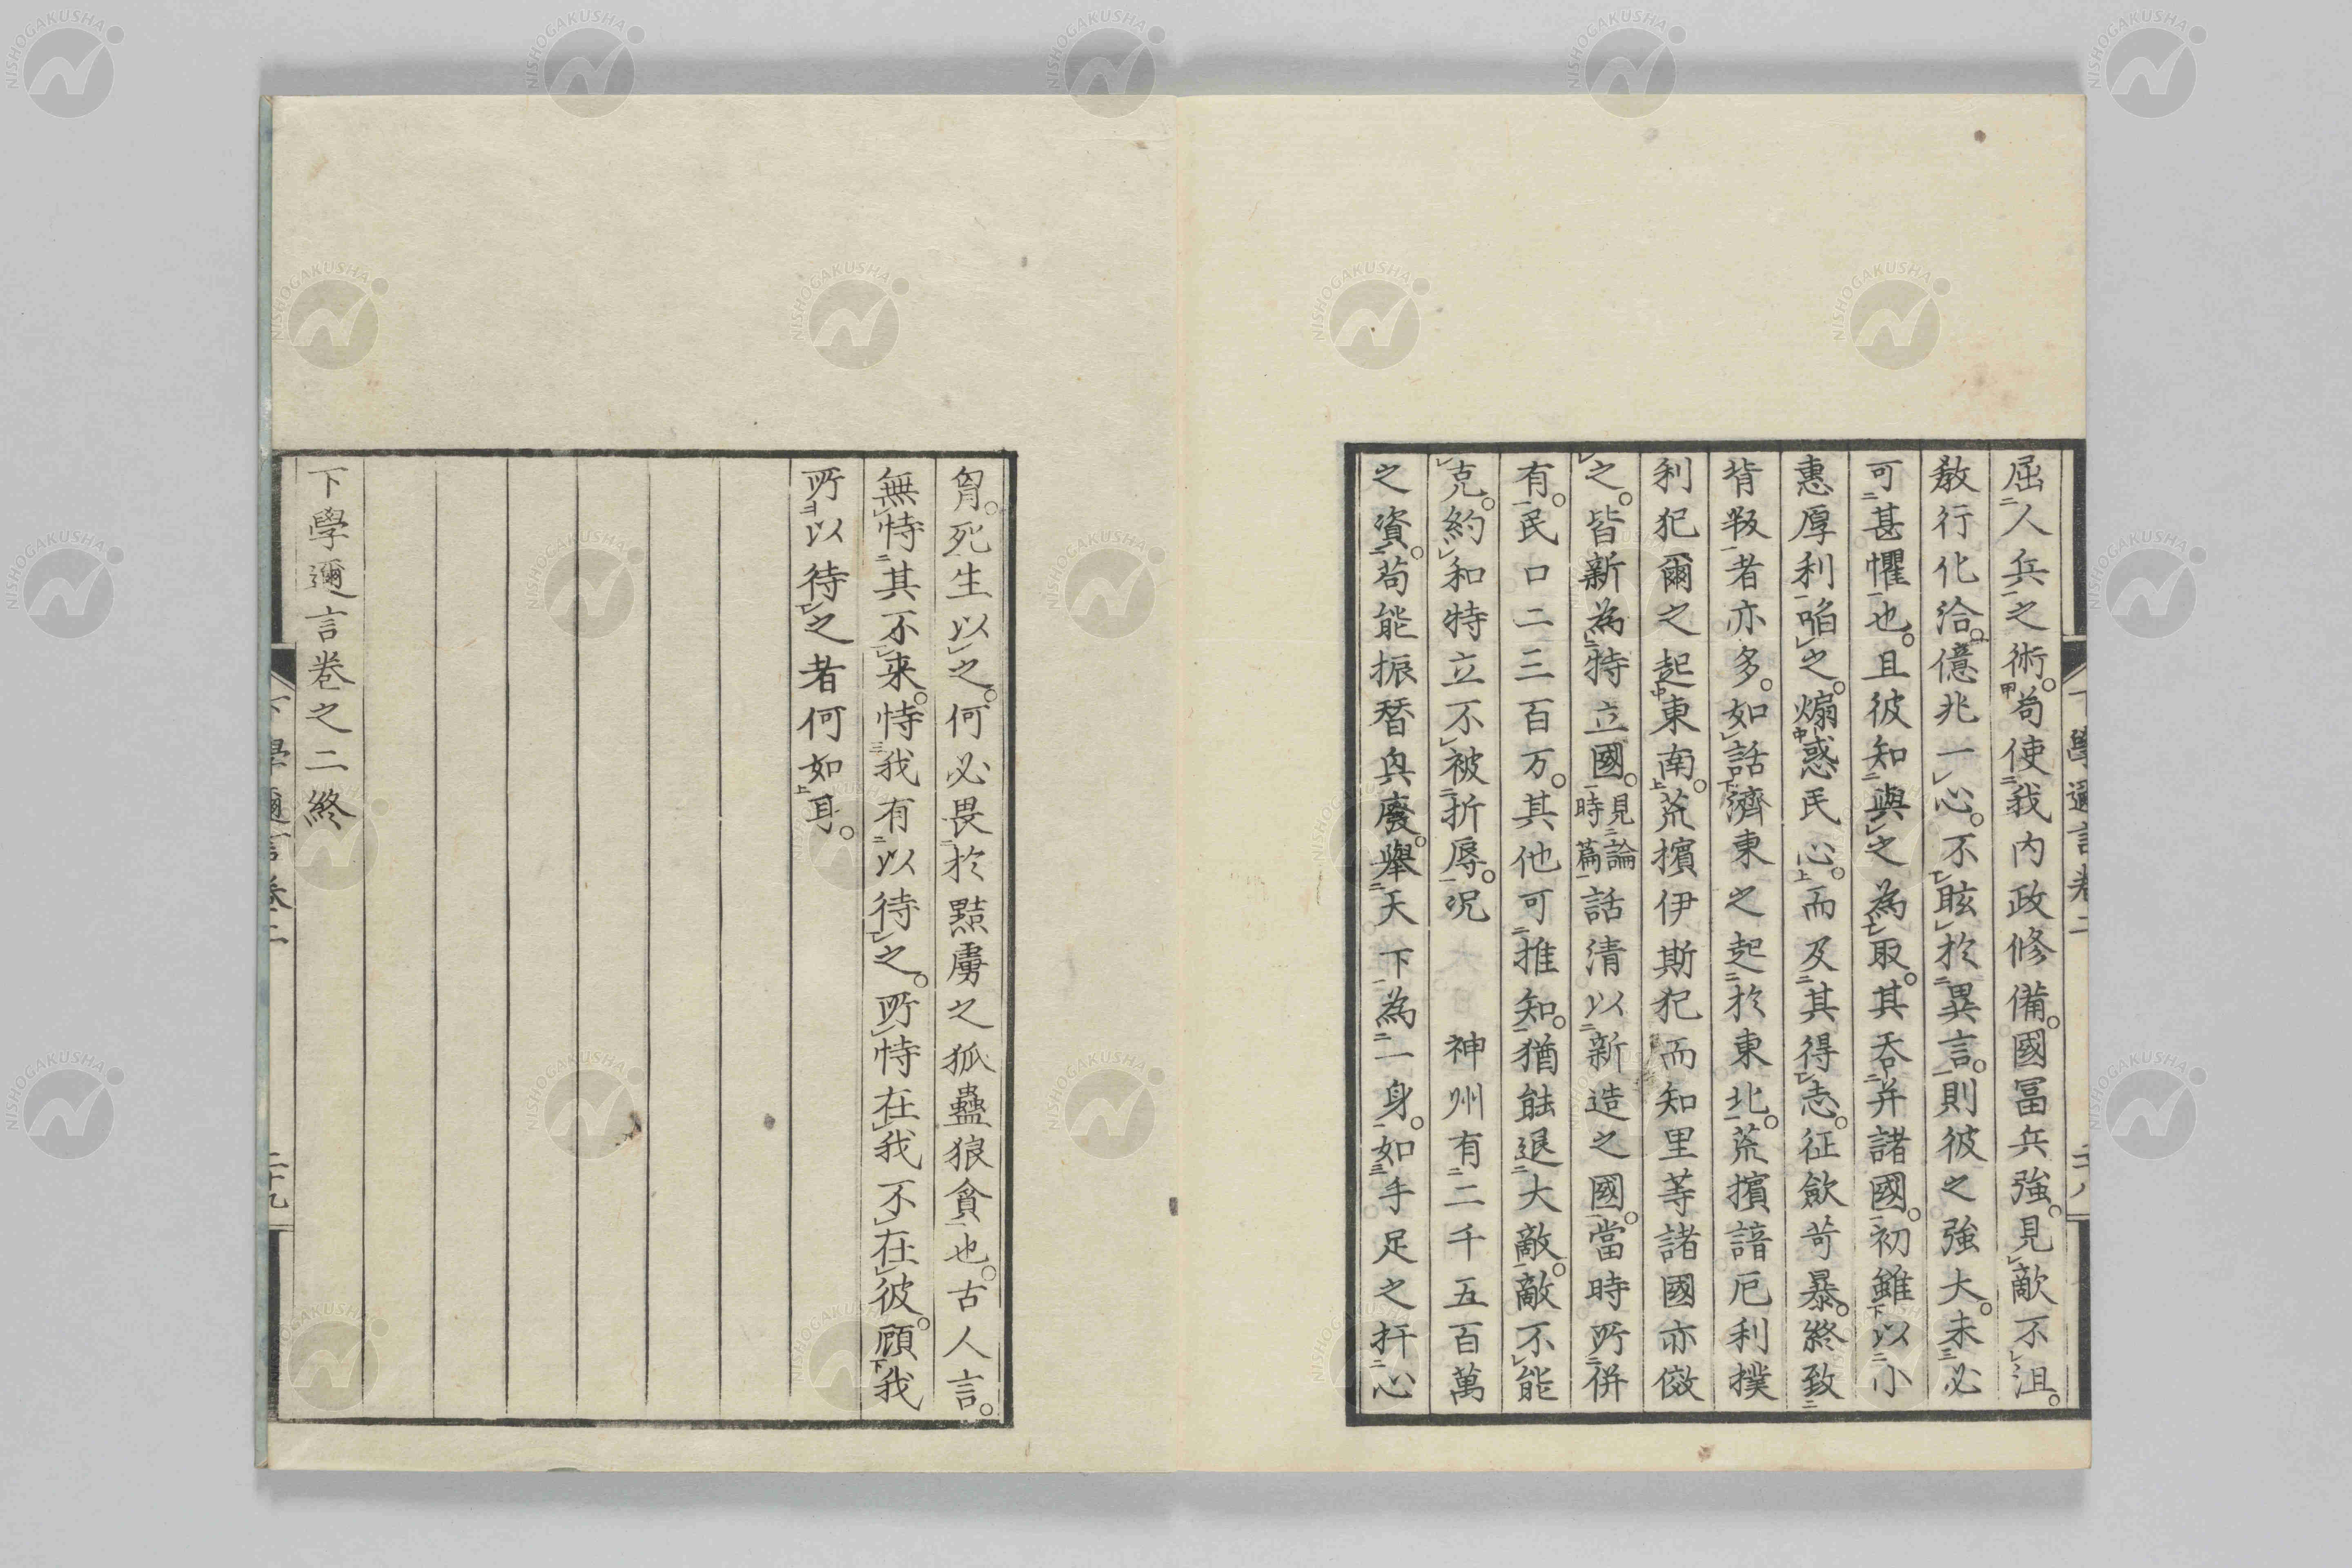 屈人兵之術。苟使我内政修備。國冨兵強。見敵不沮。
敎行化洽。億兆一心。不眩於異言。則彼之強大。未必
可甚懼也。且彼知與之為取。其吞并諸國。初雖以小
惠厚利啗之。煽惑民心。而及其得志。征歛苛暴。終致
背叛者亦多。如話濟東之起於東北。荒擯諳厄利撲
利犯爾之起東南。荒擯伊斯犯而知里等諸國亦傚
之。皆新為特立國。見論時篇話清以新造之國。當時所併
有。民口二三百万。其他可推知。猶能退大敵。敵不能
克。約和特立不被折辱。况神州有二千五百萬
之資。苟能振替與廢。舉天下為一身。如手足之扞心
胷。死生以之。何必畏於黠虜之狐蠱狼貪也。古人言。
無恃其不来。恃我有以待之。所恃在我不在彼。顧我
所以待之者何如耳。
下學邇言卷之二終
下學邇言卷二
二十九
下學邇言卷二
NISHOGAKUSHA